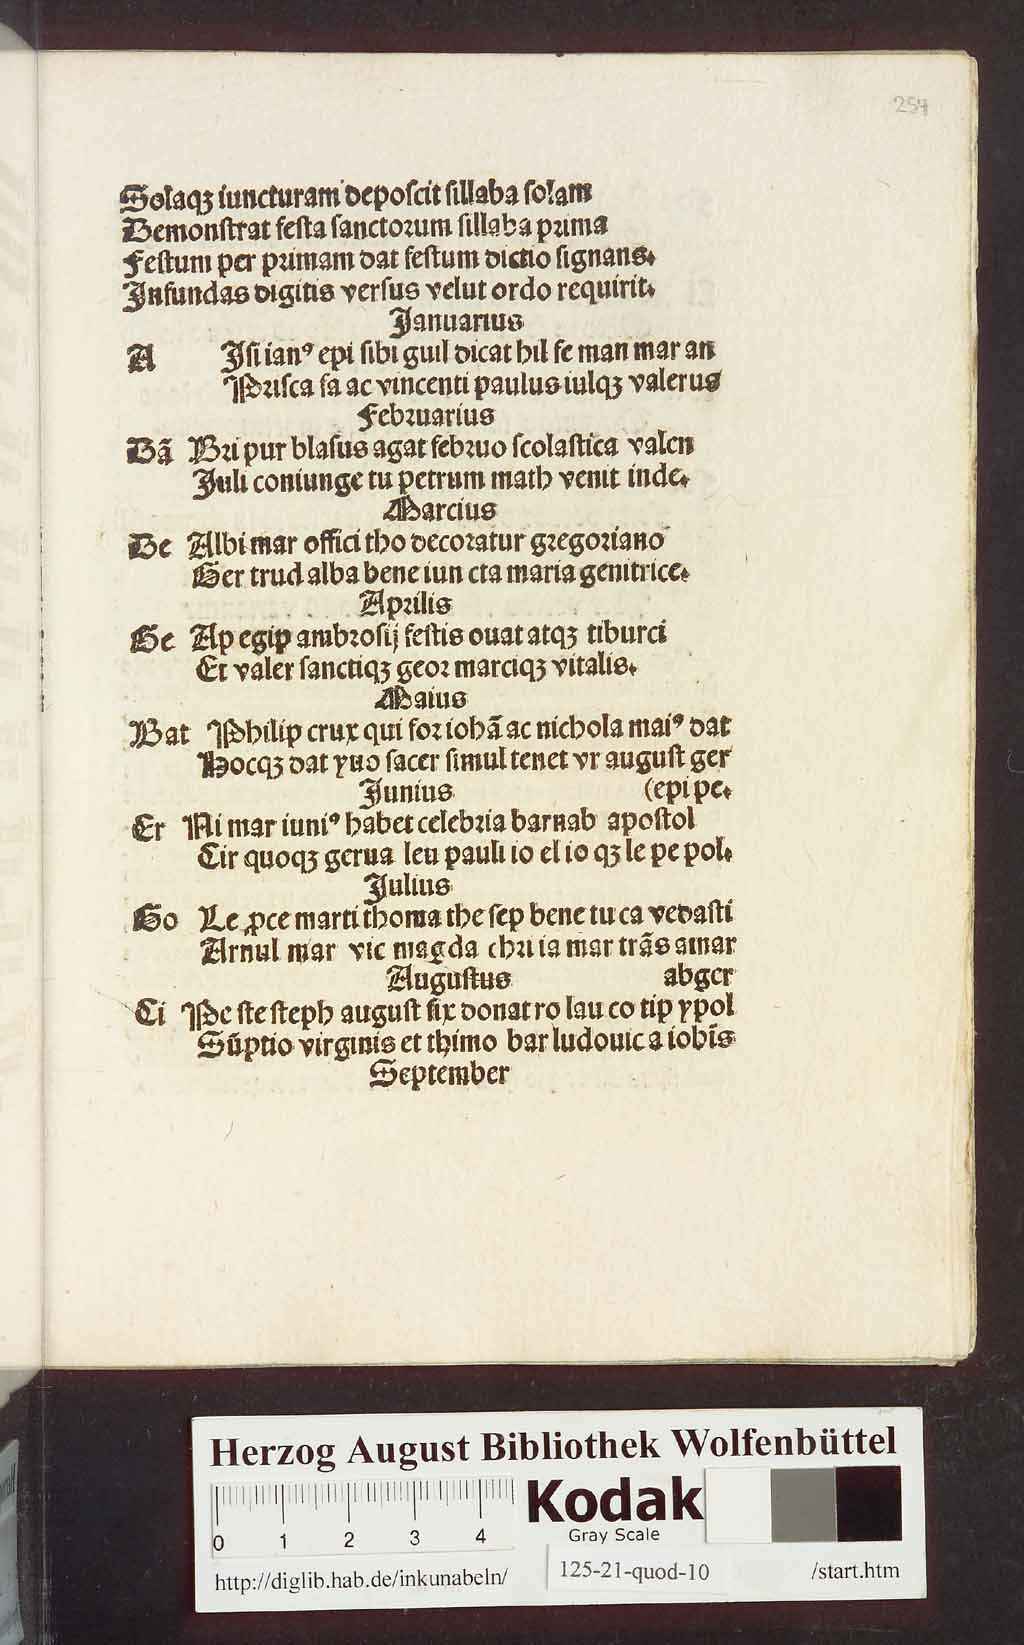 257
Solaqȝ iuncturam deposcit sillaba solam
Demonstrat festa sanctorum sillaba prima
Festum per primam dat festum dictio signans.
Infundas digitis versus velut ordo requirit.
Januarius
A Jsi ianꝰ epi sibi guil dicat hil fe man mar an
Prisca fa ac vincenti paulus iulqȝ valerus
Februarius
Dã Bri pur blasus agat februo scolastica valen
Juli coniunge tu petrum math venit inde.
Marcius
De Albi mar offici tho decoratur gregoriano
Ger trud alba bene iun cta maria genitrice.
Aprilis
Ge Ap egip ambrosij festis ouat atqȝ tiburci
Et valer sanctiqȝ geor marciqȝ vitalis.
Maius
Bat Philip crux qui for iohã ac nichola maiꝰ dat
Hocqȝ dat yuo sacer simul tenet vr august ger
Junius (epi pe.
Er Ni mar iuniꝰ habet celebria barnab apostol
Cir quoqȝ gerua leu pauli io el io qȝ le pe pol.
Julius
Go Le ꝓce marti thoma the sep bene tu ca vedasti
Arnul mar vic magda chri ia mar trãs amar
Augustus abger
Ci Pe ste steph august six donat ro lau co tip ypol
Sũptio virginis et thimo bar ludouic a iohĩs
September
Herzog August Bibliothek Wolfenbüttel
0 1 2 3 4
Kodak
Gray Scale
http://diglib.hab.de/inkunabeln/ 125-21-quod-10 /start.htm